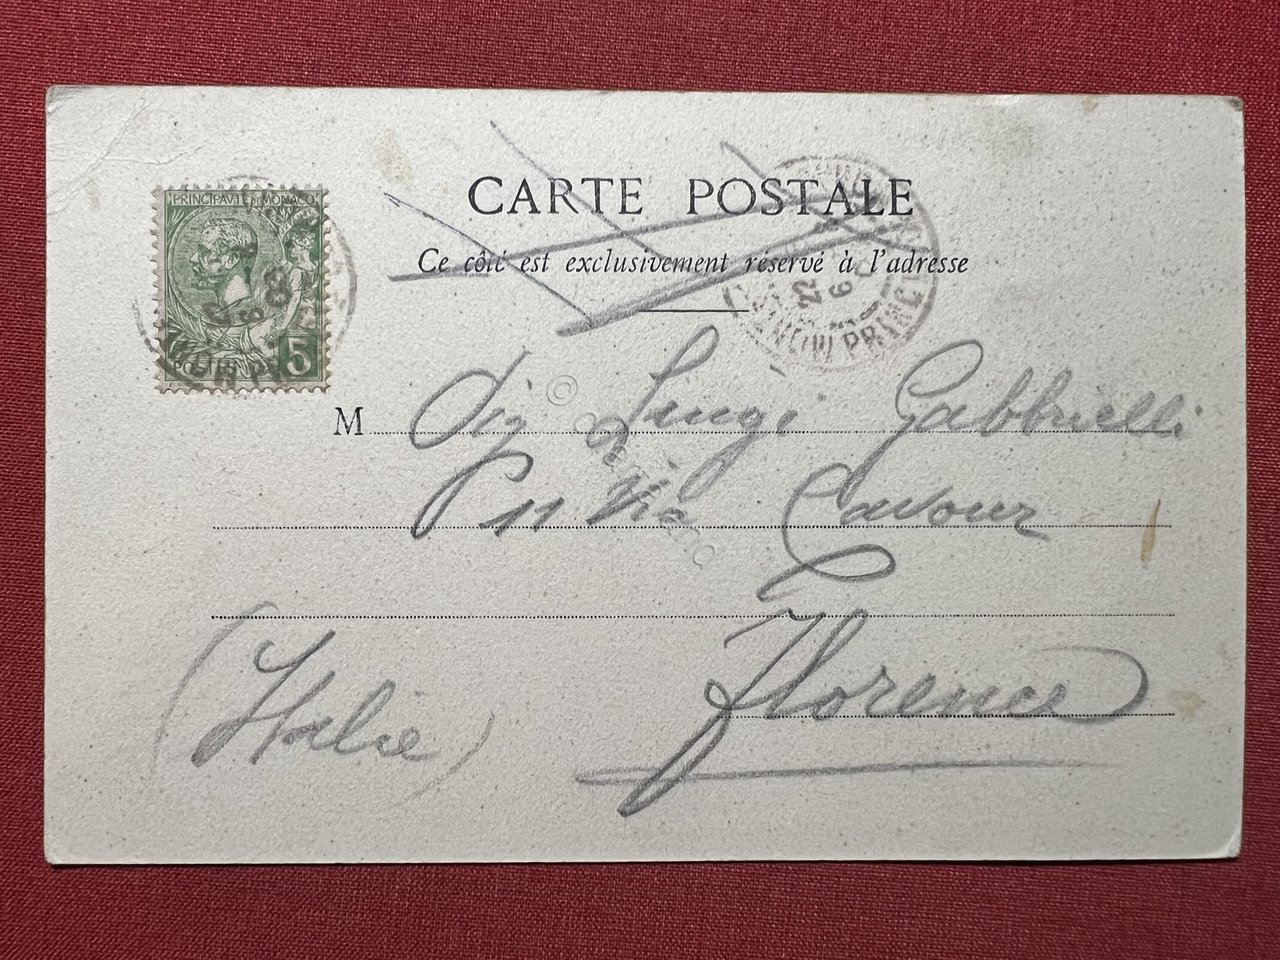 CARTE POSTALE
Ce côté est exclusivement réservé à l'adresse
PRINCIPAUTÉ DE MONACO
POSTES
5
M Sig Luigi Gabbrielli
P 11 Via Cavour
Florence
(Italie)